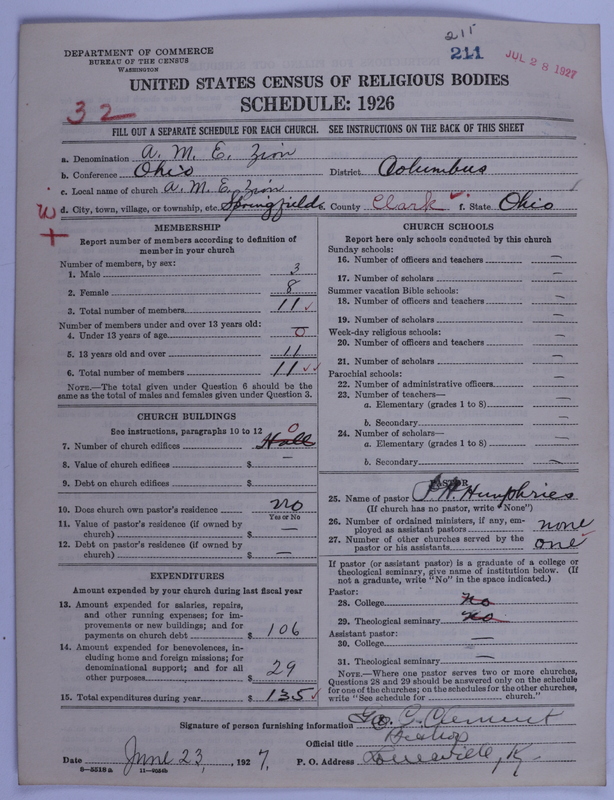 211
DEPARTMENT OF COMMERCE
BUREAU OF THE CENSUS
WASHINGTON
211
JUL 28 1927
UNITED STATES CENSUS OF RELIGIOUS BODIES
SCHEDULE: 1926
32
FILL OUT A SEPARATE SCHEDULE FOR EACH CHURCH. SEE INSTRUCTIONS ON THE BACK OF THIS SHEET
a. Denomination A. M. E. Zion
b. Conference Ohio District Columbus
c. Local name of church A. M. E. Zion
d. City, town, village, or township, etc. Springfield e. County Clark f. State Ohio
MEMBERSHIP
Report number of members according to definition of
member in your church
Number of members, by sex:
1. Male 3
2. Female 8
3. Total number of members 11
Number of members under and over 13 years old:
4. Under 13 years of age 0
5. 13 years old and over 11
6. Total number of members 11
NOTE.—The total given under Question 6 should be the
same as the total of males and females given under Question 3.
CHURCH BUILDINGS
See instructions, paragraphs 10 to 12
7. Number of church edifices Hall 0
8. Value of church edifices $ —
9. Debt on church edifices $
10. Does church own pastor's residence No
Yes or No
11. Value of pastor's residence (if owned by
church) $ —
12. Debt on pastor's residence (if owned by
church) $ —
EXPENDITURES
Amount expended by your church during last fiscal year
13. Amount expended for salaries, repairs,
and other running expenses; for im-
provements or new buildings; and for
payments on church debt $ 106
14. Amount expended for benevolences, in-
cluding home and foreign missions; for
denominational support; and for all
other purposes $ 29
15. Total expenditures during year $ 135
CHURCH SCHOOLS
Report here only schools conducted by this church
Sunday schools:
16. Number of officers and teachers —
17. Number of scholars —
Summer vacation Bible schools:
18. Number of officers and teachers —
19. Number of scholars —
Week-day religious schools:
20. Number of officers and teachers —
21. Number of scholars —
Parochial schools:
22. Number of administrative officers —
23. Number of teachers—
a. Elementary (grades 1 to 8) —
b. Secondary —
24. Number of scholars—
a. Elementary (grades 1 to 8) —
b. Secondary —
PASTOR
25. Name of pastor Humphries
(If church has no pastor, write "None")
26. Number of ordained ministers, if any, em-
ployed as assistant pastors none
27. Number of other churches served by the
pastor or his assistants one
If pastor (or assistant pastor) is a graduate of a college or
theological seminary, give name of institution below. (If
not a graduate, write "No" in the space indicated.)
Pastor:
28. College no
29. Theological seminary no
Assistant pastor:
30. College —
31. Theological seminary —
NOTE.—Where one pastor serves two or more churches,
Questions 28 and 29 should be answered only on the schedule
for one of the churches; on the schedules for the other churches,
write "See schedule for church."
Signature of person furnishing information Geo. C. Clement
Official title Bishop
Date June 23, 1927. P. O. Address Louisville, Ky.